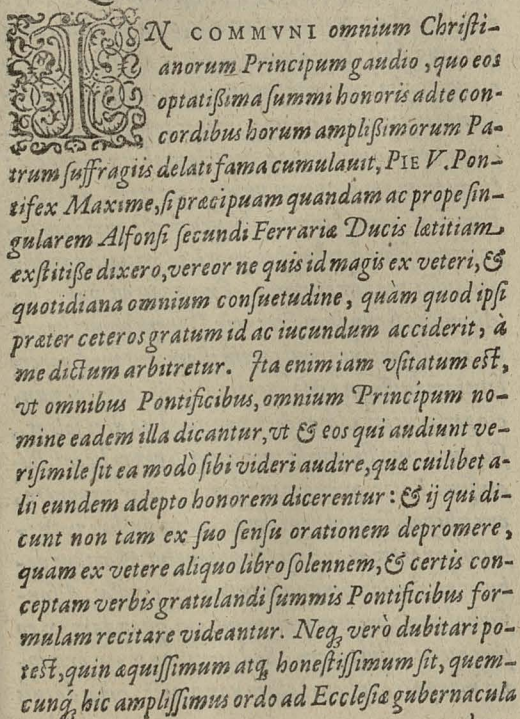 IN COMMVNI omnium Chriſti-
anorum Principum gaudio, quo eos
optatißima ſummi honoris ad te con-
cordibus horum amplißimorum Pa-
trum ſuffragiis delati fama cumulauit, PIE V. Pon-
tifex Maxime, ſi præcipuam quandam ac prope ſin-
gularem Alfonſi ſecundi Ferrariæ Ducis lætitiam
exſtitiße dixero, vereor ne quis id magis ex veteri, &
quotidiana omnium conſuetudine, quàm quod ipſi
præter ceteros gratum id ac iucundum acciderit, à
me dictum arbitretur. Ita enim iam vſitatum eſt,
vt omnibus Pontificibus, omnium Principum no-
mine eadem illa dicantur, vt & eos qui audiunt ve-
riſimile ſit ea modò ſibi videri audire, quæ cuilibet a-
lii eundem adepto honorem dicerentur: & ij qui di-
cunt non tàm ex ſuo ſenſu orationem depromere,
quàm ex vetere aliquo libro ſolennem, & certis con-
ceptam verbis gratulandi ſummis Pontificibus for-
mulam recitare videantur. Neq; verò dubitari po-
teſt, quin æquiſſimum atq; honeſtiſſimum ſit, quem-
cunq́; hic ampliſſimus ordo ad Eccleſiæ gubernacula